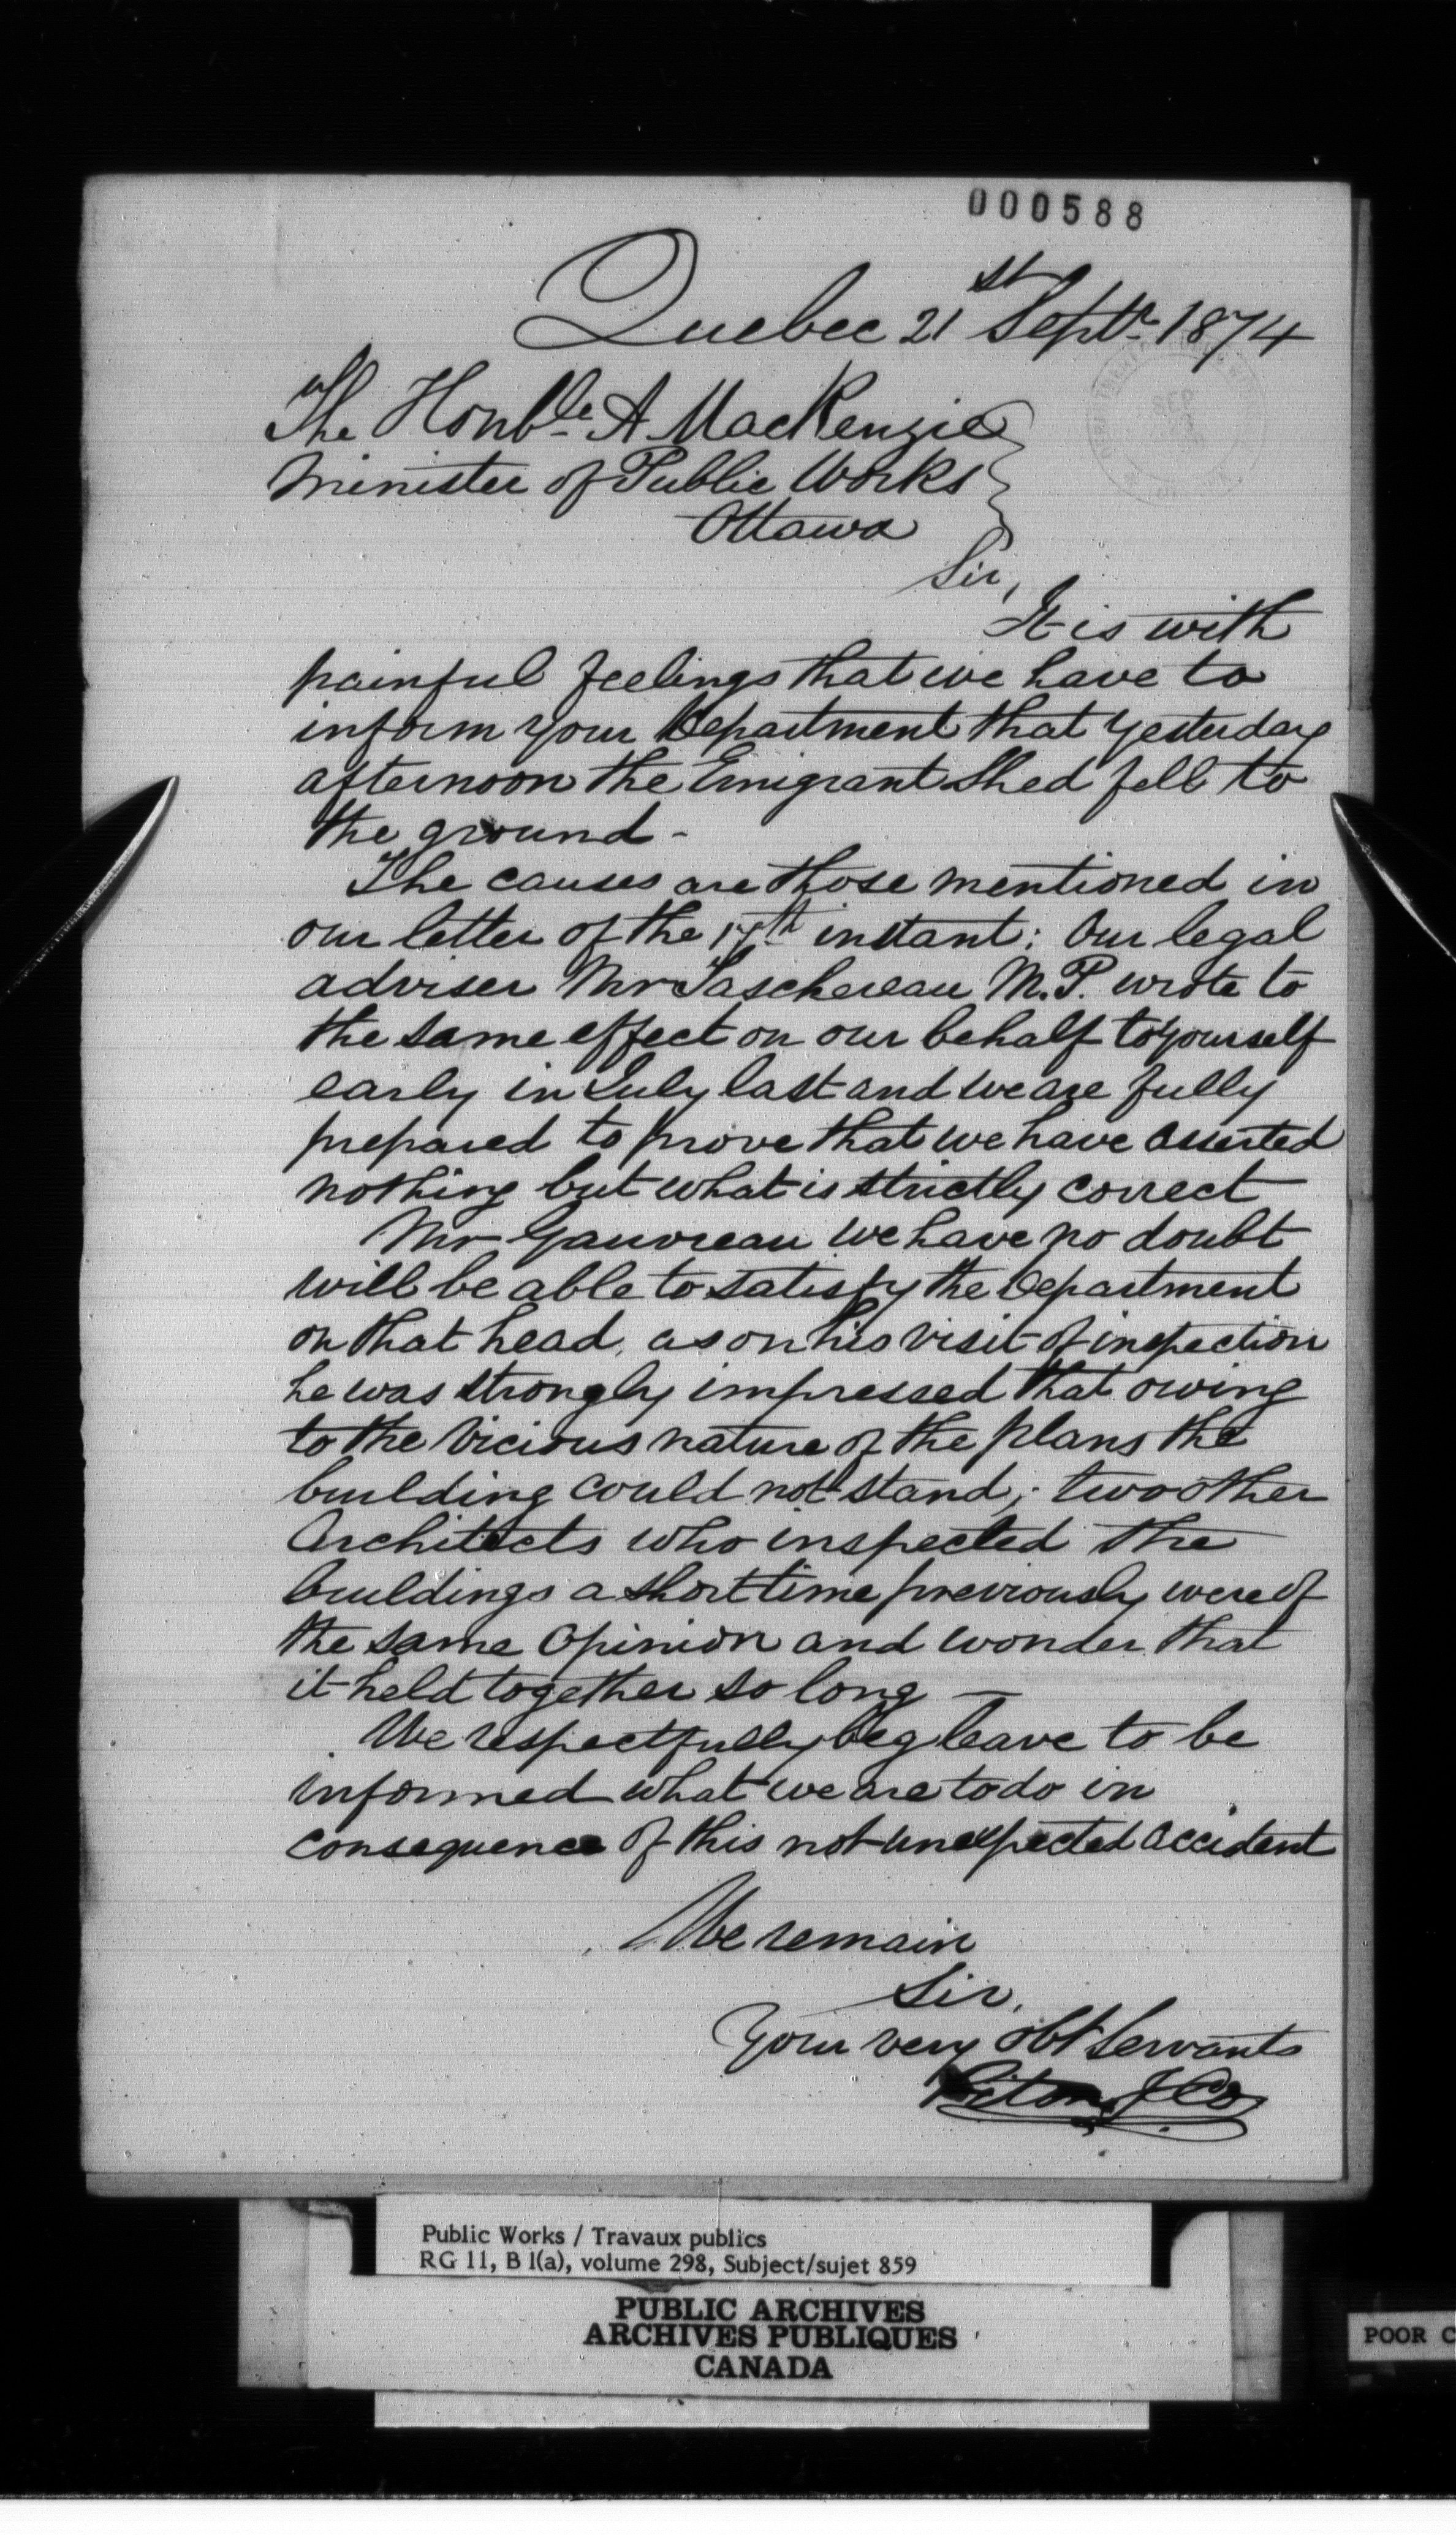 000588
Quebec 21st Septr 1874
The Honble A MacKenzie
Minister of Public Works
Ottawa
Sir,
It is with
painful feelings that we have to
inform your Department that yesterday
afternoon the Emigrant Shed fell to
the ground -
The causes are those mentioned in
our letter of the 17th instant: Our legal
adviser Mr Taschereau M.P. wrote to
the same effect on our behalf to yourself
early in July last and we are fully
prepared to prove that we have asserted
nothing but what is strictly correct
Mr Gauvreau we have no doubt
will be able to satisfy the Department
on that head, as on his visit of inspection
he was strongly impressed that owing
to the vicious nature of the plans the
building could not stand; two other
Architects who inspected the
buildings a short time previously were of
the same opinion and wonder that
it held together so long —
We respectfully beg leave to be
informed what we are to do in
consequence of this not unexpected accident
We remain
Sir,
Your very obt Servants
Piton & Co
Public Works / Travaux publics
RG 11, B 1(a), volume 298, Subject/sujet 859
PUBLIC ARCHIVES
ARCHIVES PUBLIQUES
CANADA
POOR C